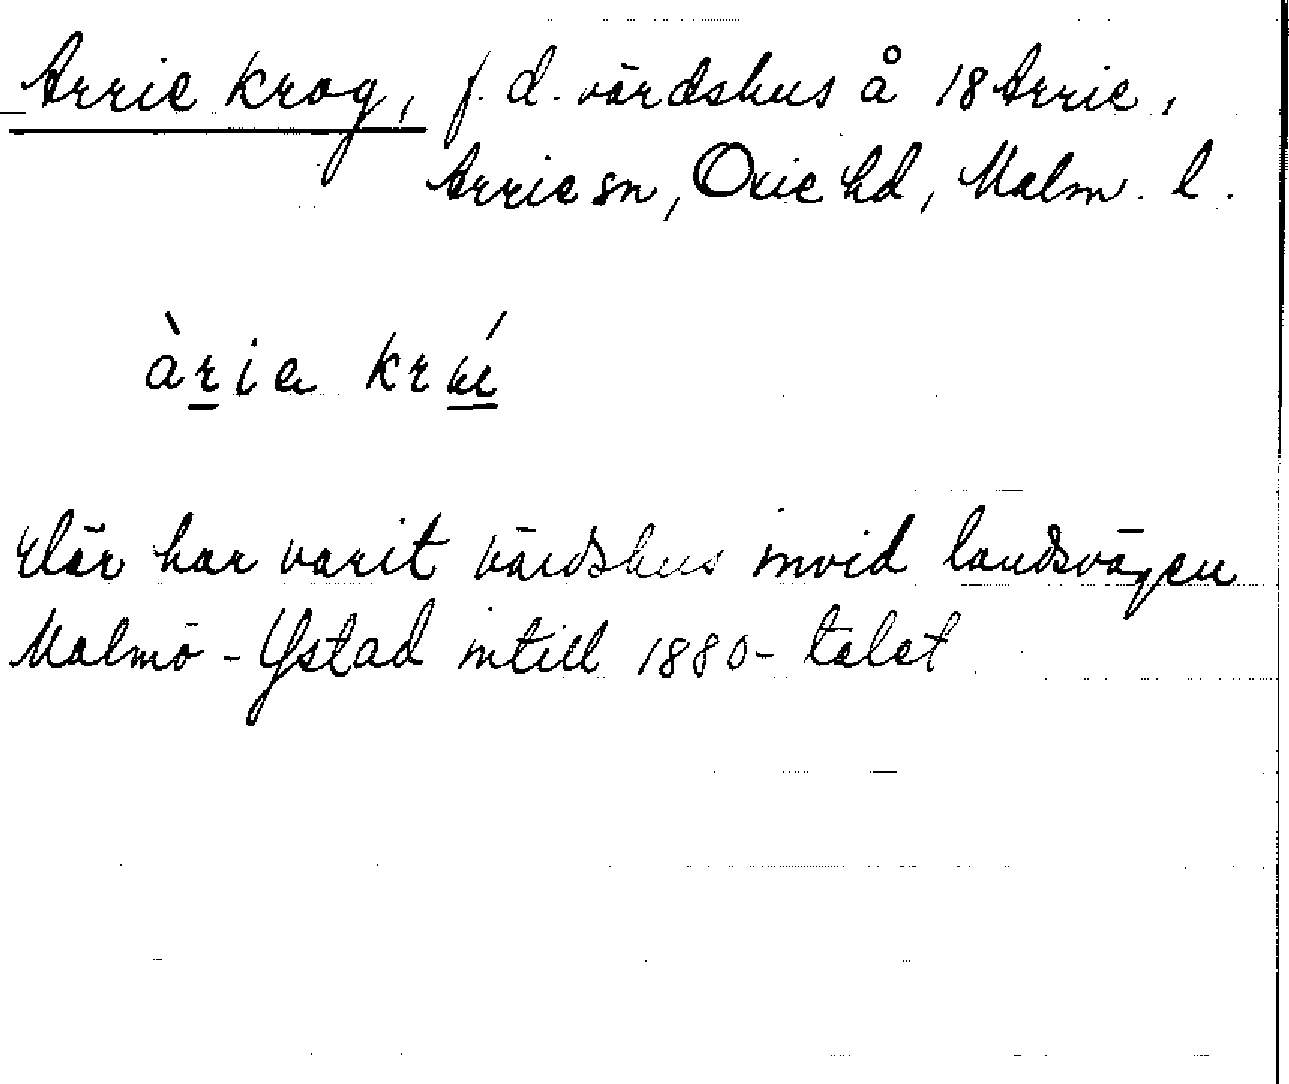 Arrie krog, f. d. värdshus å 18 Arrie,
Arrie sn, Oxie hd, Malm. l.
ària
Där har varit värdshus invid landsvägen
Malmö - Ystad intill 1880-talet